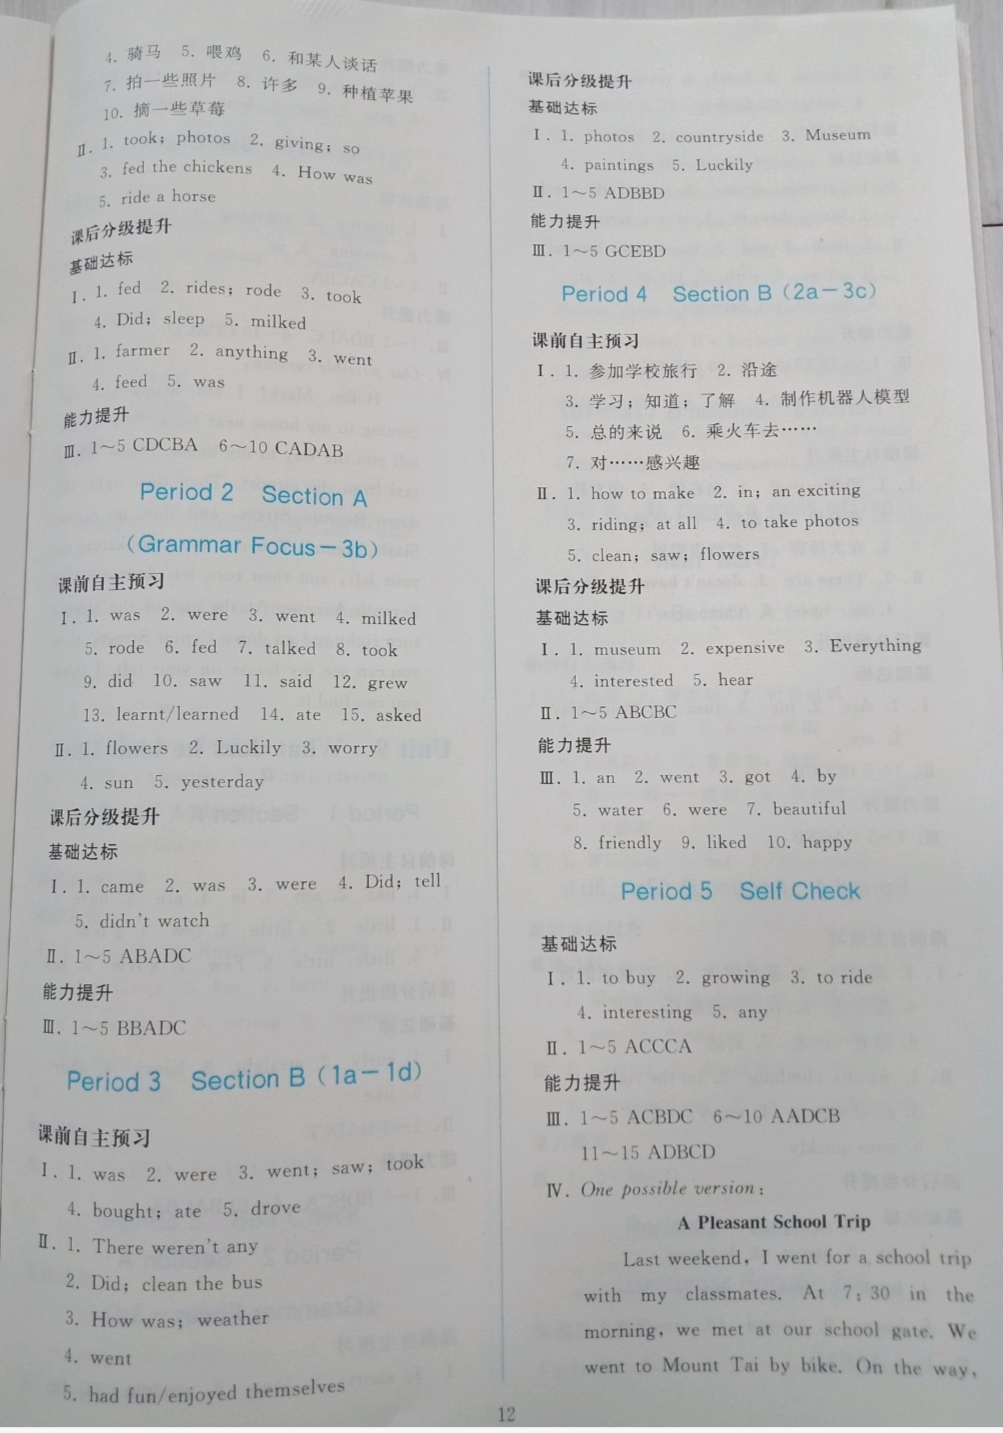 4. 骑马 5. 喂鸡 6. 和某人谈话
7. 拍一些照片 8. 许多 9. 种植苹果
10. 摘一些草莓
Ⅱ. 1. took; photos 2. giving; so
3. fed the chickens 4. How was
5. ride a horse
课后分级提升
基础达标
Ⅰ. 1. fed 2. rides; rode 3. took
4. Did; sleep 5. milked
Ⅱ. 1. farmer 2. anything 3. went
4. feed 5. was
能力提升
Ⅲ. 1～5 CDCBA 6～10 CADAB
Period 2 Section A
(Grammar Focus－3b)
课前自主预习
Ⅰ. 1. was 2. were 3. went 4. milked
5. rode 6. fed 7. talked 8. took
9. did 10. saw 11. said 12. grew
13. learnt/learned 14. ate 15. asked
Ⅱ. 1. flowers 2. Luckily 3. worry
4. sun 5. yesterday
课后分级提升
基础达标
Ⅰ. 1. came 2. was 3. were 4. Did; tell
5. didn't watch
Ⅱ. 1～5 ABADC
能力提升
Ⅲ. 1～5 BBADC
Period 3 Section B (1a－1d)
课前自主预习
Ⅰ. 1. was 2. were 3. went; saw; took
4. bought; ate 5. drove
Ⅱ. 1. There weren't any
2. Did; clean the bus
3. How was; weather
4. went
5. had fun/enjoyed themselves
课后分级提升
基础达标
Ⅰ. 1. photos 2. countryside 3. Museum
4. paintings 5. Luckily
Ⅱ. 1～5 ADBBD
能力提升
Ⅲ. 1～5 GCEBD
Period 4 Section B (2a－3c)
课前自主预习
Ⅰ. 1. 参加学校旅行 2. 沿途
3. 学习；知道；了解 4. 制作机器人模型
5. 总的来说 6. 乘火车去……
7. 对……感兴趣
Ⅱ. 1. how to make 2. in; an exciting
3. riding; at all 4. to take photos
5. clean; saw; flowers
课后分级提升
基础达标
Ⅰ. 1. museum 2. expensive 3. Everything
4. interested 5. hear
Ⅱ. 1～5 ABCBC
能力提升
Ⅲ. 1. an 2. went 3. got 4. by
5. water 6. were 7. beautiful
8. friendly 9. liked 10. happy
Period 5 Self Check
基础达标
Ⅰ. 1. to buy 2. growing 3. to ride
4. interesting 5. any
Ⅱ. 1～5 ACCCA
能力提升
Ⅲ. 1～5 ACBDC 6～10 AADCB
11～15 ADBCD
Ⅳ. One possible version:
A Pleasant School Trip
Last weekend, I went for a school trip
with my classmates. At 7:30 in the
morning, we met at our school gate. We
went to Mount Tai by bike. On the way,
12